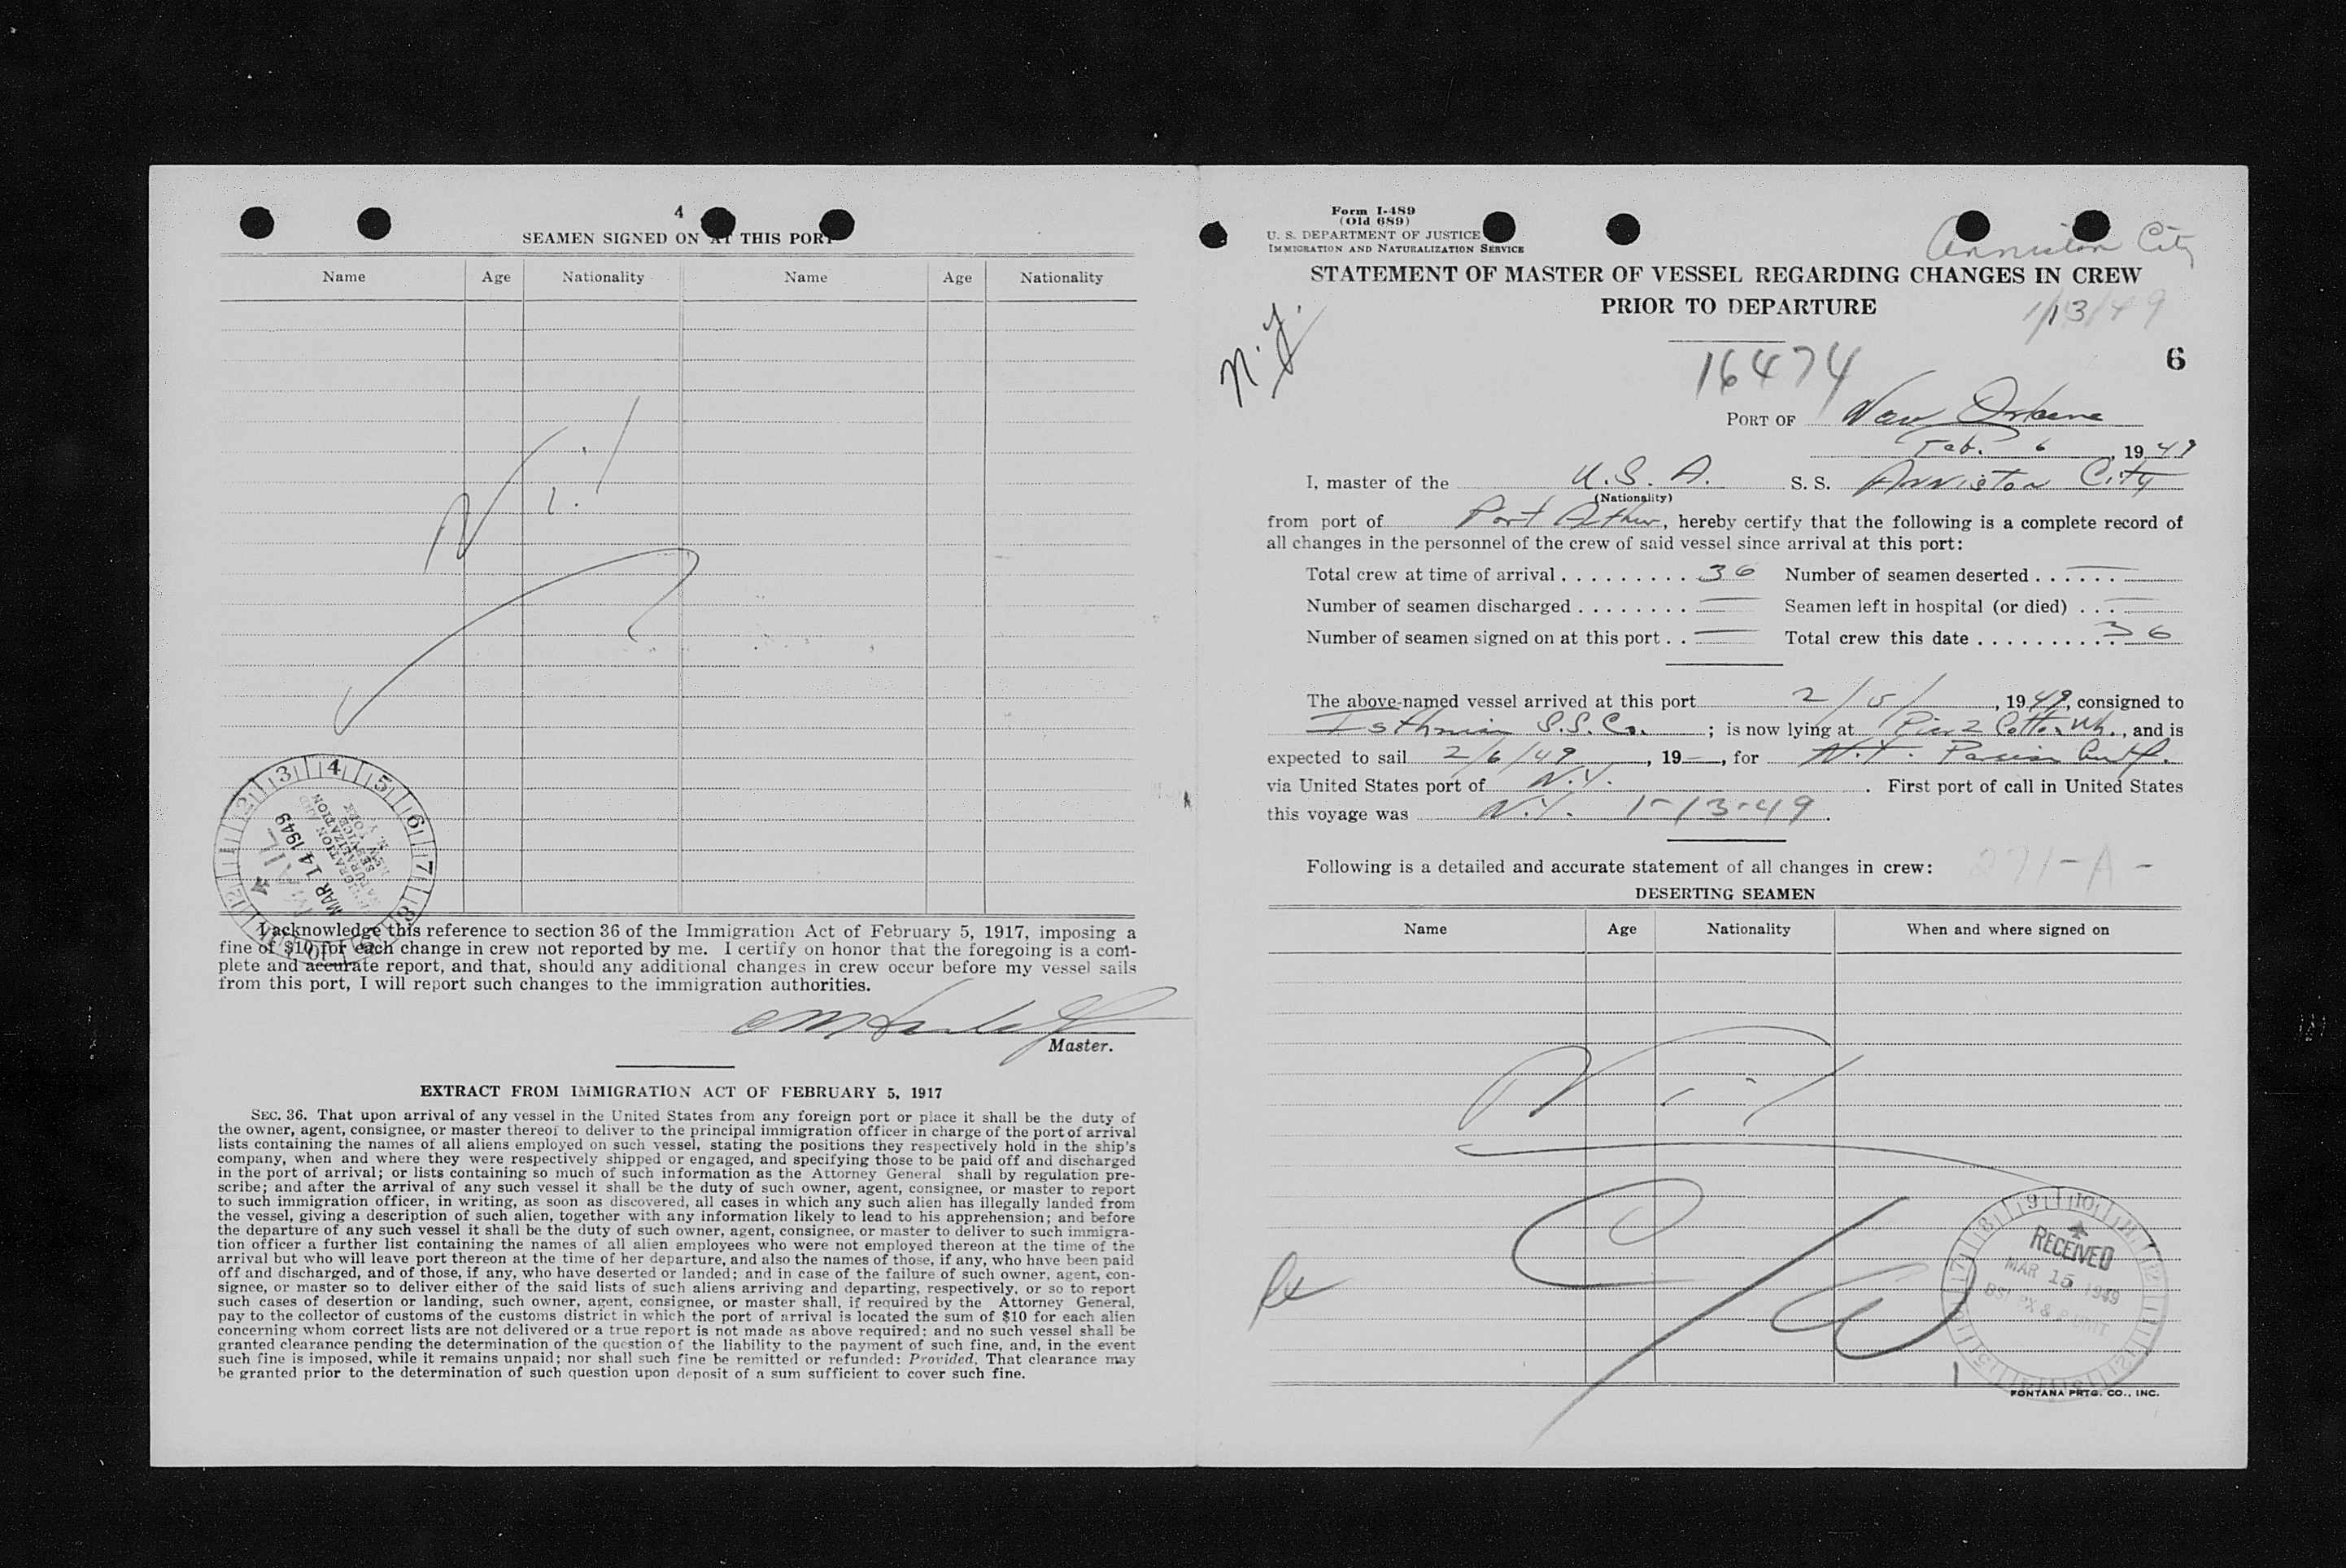 4
SEAMEN SIGNED ON AT THIS PORT
Name Age Nationality Name Age Nationality
Nil
MAR 14 1949
I acknowledge this reference to section 36 of the Immigration Act of February 5, 1917, imposing a
fine of $10 for each change in crew not reported by me. I certify on honor that the foregoing is a com-
plete and accurate report, and that, should any additional changes in crew occur before my vessel sails
from this port, I will report such changes to the immigration authorities.
Master.
EXTRACT FROM IMMIGRATION ACT OF FEBRUARY 5, 1917
SEC. 36. That upon arrival of any vessel in the United States from any foreign port or place it shall be the duty of
the owner, agent, consignee, or master thereof to deliver to the principal immigration officer in charge of the port of arrival
lists containing the names of all aliens employed on such vessel, stating the positions they respectively hold in the ship's
company, when and where they were respectively shipped or engaged, and specifying those to be paid off and discharged
in the port of arrival; or lists containing so much of such information as the Attorney General shall by regulation pre-
scribe; and after the arrival of any such vessel it shall be the duty of such owner, agent, consignee, or master to report
to such immigration officer, in writing, as soon as discovered, all cases in which any such alien has illegally landed from
the vessel, giving a description of such alien, together with any information likely to lead to his apprehension; and before
the departure of any such vessel it shall be the duty of such owner, agent, consignee, or master to deliver to such immigra-
tion officer a further list containing the names of all alien employees who were not employed thereon at the time of the
arrival but who will leave port thereon at the time of her departure, and also the names of those, if any, who have been paid
off and discharged, and of those, if any, who have deserted or landed; and in case of the failure of such owner, agent, con-
signee, or master so to deliver either of the said lists of such aliens arriving and departing, respectively, or so to report
such cases of desertion or landing, such owner, agent, consignee, or master shall, if required by the Attorney General,
pay to the collector of customs of the customs district in which the port of arrival is located the sum of $10 for each alien
concerning whom correct lists are not delivered or a true report is not made as above required; and no such vessel shall be
granted clearance pending the determination of the question of the liability to the payment of such fine, and, in the event
such fine is imposed, while it remains unpaid; nor shall such fine be remitted or refunded: Provided, That clearance may
be granted prior to the determination of such question upon deposit of a sum sufficient to cover such fine.
Form I-489
(Old 689)
U. S. DEPARTMENT OF JUSTICE
IMMIGRATION AND NATURALIZATION SERVICE
Anniston City
STATEMENT OF MASTER OF VESSEL REGARDING CHANGES IN CREW
PRIOR TO DEPARTURE
1/13/49
N.Y.
16474
6
PORT OF New Orleans
Feb. 6, 1949
I, master of the U.S.A. S. S. Anniston City
(Nationality)
from port of Port Arthur, hereby certify that the following is a complete record of
all changes in the personnel of the crew of said vessel since arrival at this port:
Total crew at time of arrival . . . . . . . . . 36 Number of seamen deserted . . . . . . —
Number of seamen discharged . . . . . . . . — Seamen left in hospital (or died) . . . —
Number of seamen signed on at this port . . — Total crew this date . . . . . . . . . . 36
The above-named vessel arrived at this port 2/5/, 1949, consigned to
Isthmian S.S. Co. ; is now lying at Pier 2 Cotton Wh., and is
expected to sail 2/6/49, 19—, for N.Y. Persian Gulf.
via United States port of N.Y. . First port of call in United States
this voyage was N.Y. 1-13-49 .
Following is a detailed and accurate statement of all changes in crew: 271-A-
DESERTING SEAMEN
Name Age Nationality When and where signed on
Nil
RECEIVED
MAR 15 1949
FONTANA PRTG. CO., INC.